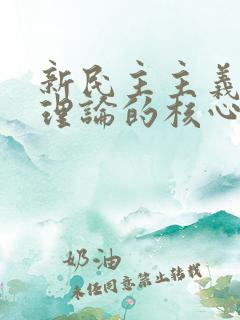 新民主主義
理論的核心
奶油
未經同意禁止轉載